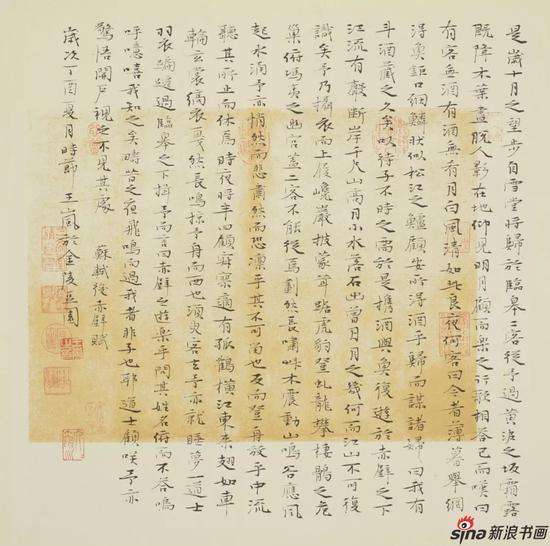 是歲十月之望步自雪堂將歸於臨皋二客從予過黃泥之坂霜露
既降木葉盡脫人影在地仰見明月顧而樂之行歌相答已而嘆曰
有客無酒有酒無肴月白風清如此良夜何客曰今者薄暮舉網
得魚巨口細鱗狀似松江之鱸顧安所得酒乎歸而謀諸婦曰我有
斗酒藏之久矣以待子不時之需於是攜酒與魚復遊於赤壁之下
江流有聲斷岸千尺山高月小水落石出曾日月之幾何而江山不可復
識矣予乃攝衣而上履巉巖披蒙茸踞虎豹登虬龍攀棲鶻之危
巢俯馮夷之幽宮蓋二客不能從焉劃然長嘯艸木震動山鳴谷應風
起水涌予亦悄然而悲肅然而恐凜乎其不可留也反而登舟放乎中流
聽其所止而休焉時夜將半四顧寂寥適有孤鶴橫江東來翅如車
輪玄裳縞衣戛然長鳴掠予舟而西也須臾客去予亦就睡夢一道士
羽衣蹁躚過臨皋之下揖予而言曰赤壁之遊樂乎問其姓名俯而不答嗚
呼噫嘻我知之矣疇昔之夜飛鳴而過我者非子也耶道士顧笑予亦
驚悟開戶視之不見其處 蘇軾後赤壁賦
歲次丁酉夏月時節王嵐於金陵園
sina新浪书画